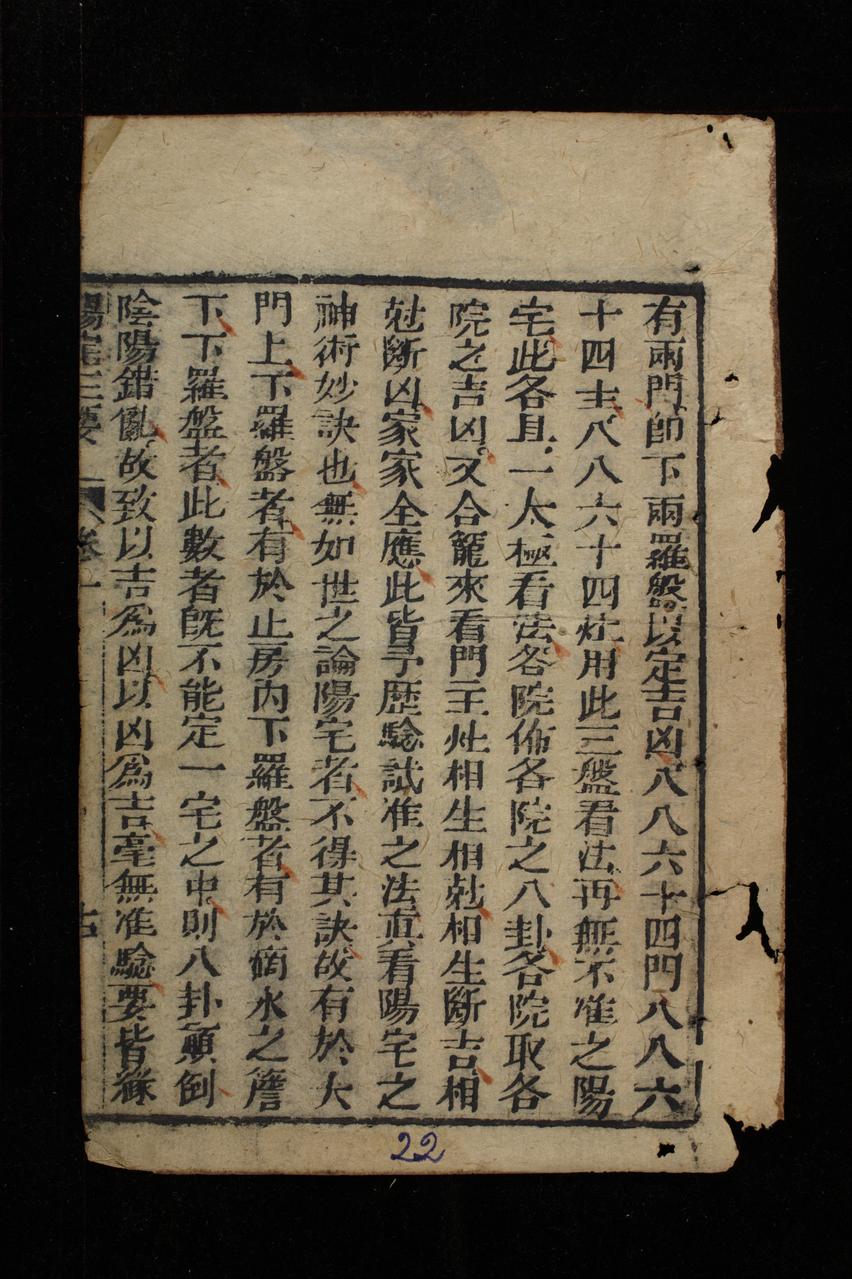 有兩門即下兩羅盤以定吉凶八八六十四門八八六
十四主八八六十四灶用此三盤看法再無不准之陽
宅此各具一太極看法各院佈各院之八卦各院取各
院之吉凶又合籠來看門主灶相生相尅相生斷吉相
尅斷凶家家全應此皆予歷騐試准之法真看陽宅之
神術妙訣也無如世之論陽宅者不得其訣故有於大
門上下羅盤者有於止房內下羅盤者有於滴水之簷
下下羅盤者此數者既不能定一宅之中則八卦顛倒
陰陽錯亂故致以吉為凶以凶為吉毫無准騐要皆緣
陽宅三要 卷一
22